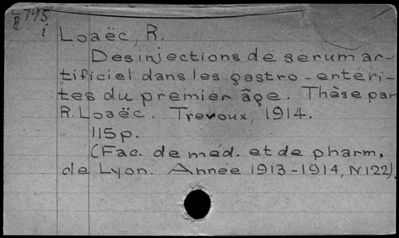 R795
i
Loaëc, R.
Des injections de serum ar-
tificiel dans les gastro-enteri-
tes du premier âge. Thèse par
R. Loaëc. Trevoux, 1914.
115 p.
(Fac. de méd. et de pharm.
de Lyon. Année 1913-1914, N122).